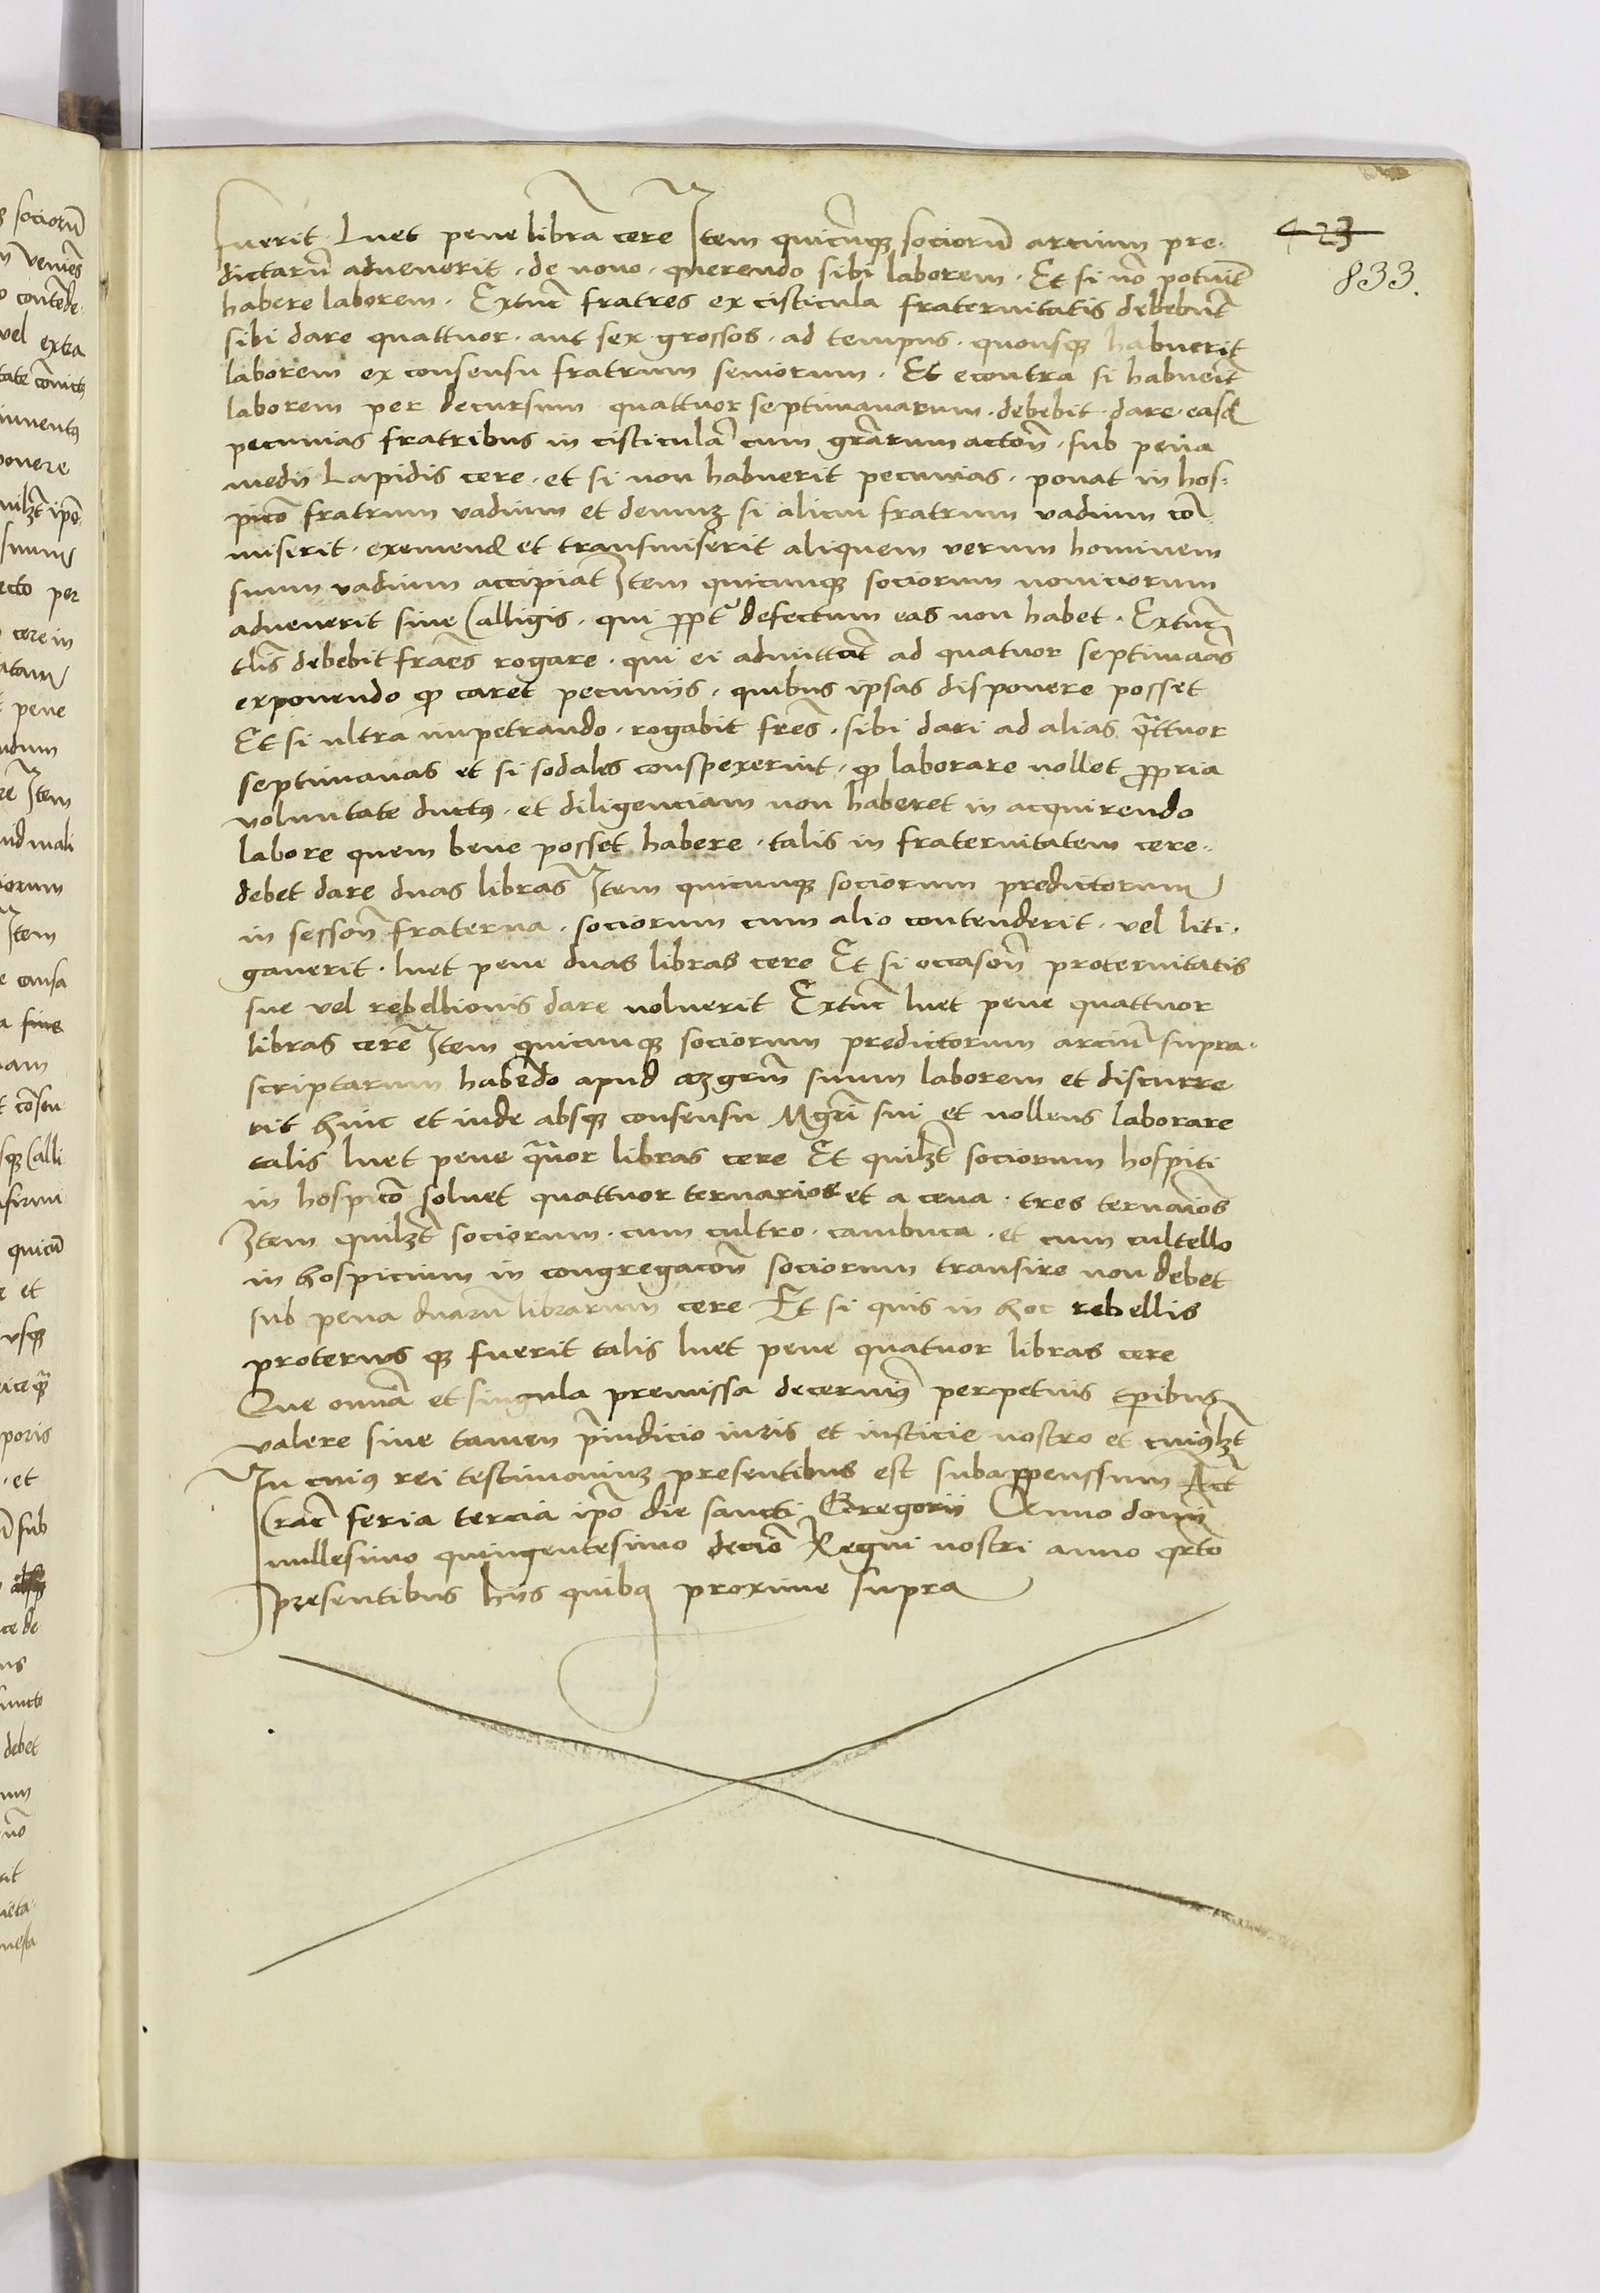 423
833.
fuerit. Luet pene libra cere Item quicũqʒ sociorũ arcium pre-
dictarũ advenerit. de novo. querendo sibi laborem. Et si nõ potuit̃
habere laborem. Extũc fratres ex cisticula fraternitatis debebũt
sibi dare quattuor. aut sex grossos. ad tempus. quousqʒ habuerit
laborem ex consensu fratrum seniorum. Et econtra si habuerit̃
laborem per decursum quattuor septimanarum. debebit. dare. easd̃
pecunias fratribus in cisticulã cum grãrum actoñ. sub pena
medii Lapidis cere. et si non habuerit pecunias. ponat in hos-
picõ fratrum vadium et demuʒ si alicui fratrum vadium cõ
miserit. exemend̃ et transmiserit aliquem verum hominem
suum vadium accipiat Item quicunqʒ sociorum noviciorum
advenerit sine Calligis. qui ꝓpt̃ defectum eas non habet. Extũc
tl̃is debebit frães rogare. qui ei admittãt ad quatuor septimãas
exponendo qõ caret pecuniis. quibus ipsas disponere posset
Et si ultra impetrando. rogabit frẽs. sibi dari ad alias q̃ttuor
septimanas et si sodales conspexerint. qõ laborare nollet ꝓpria
voluntate ductꝰ. et diligenciam non haberet in acquirendo
labore quem bene posset habere. talis in fraternitatem cere.
debet dare duas libras Item quicunqʒ sociorum predictorum
in sessoñ fraterna. sociorum cum alio contenderit. vel liti-
gaverit. luet pene duas libras cere Et si occasoñ protervitatis
sue vel rebellionis dare noluerit Extũc luet pene quattuor
libras cere Item quicunqʒ sociorum predictorum arciũ supra-
scriptarum habẽdo apud mgr̃m suum laborem et discurre
rit hinc et inde absqʒ consensu Mgr̃i sui et nollens laborare
talis luet pene q̃uor libras cere Et quilʒt sociorum hospiti
in hospicõ solvet quattuor ternarios et a cena. tres ternãios
Item quilʒt sociorum. cum cultro. cambuca. et cum cultello
in hospicium in congregacoñ sociorum transire non debet
sub pena duarũ librarum cere Et si quis in hoc rebellis
protervus qʒ fuerit talis luet pene quatuor libras cere
Que omĩa et singula premissa decernimꝰ perpetuis tp̃ibus
valere sine tamen p̃iudicio iuris et iusticie nostro et cuiuslʒt
In cuiꝰ rei testimoniuʒ presentibus est subappenssum Act̃
Crac̃ feria tercia ipõ die sancti Gregorii Anno domĩ
millesimo quingentesimo decĩo Regni nostri anno q̃rto
presentibus hiis quibꝰ proxime supra